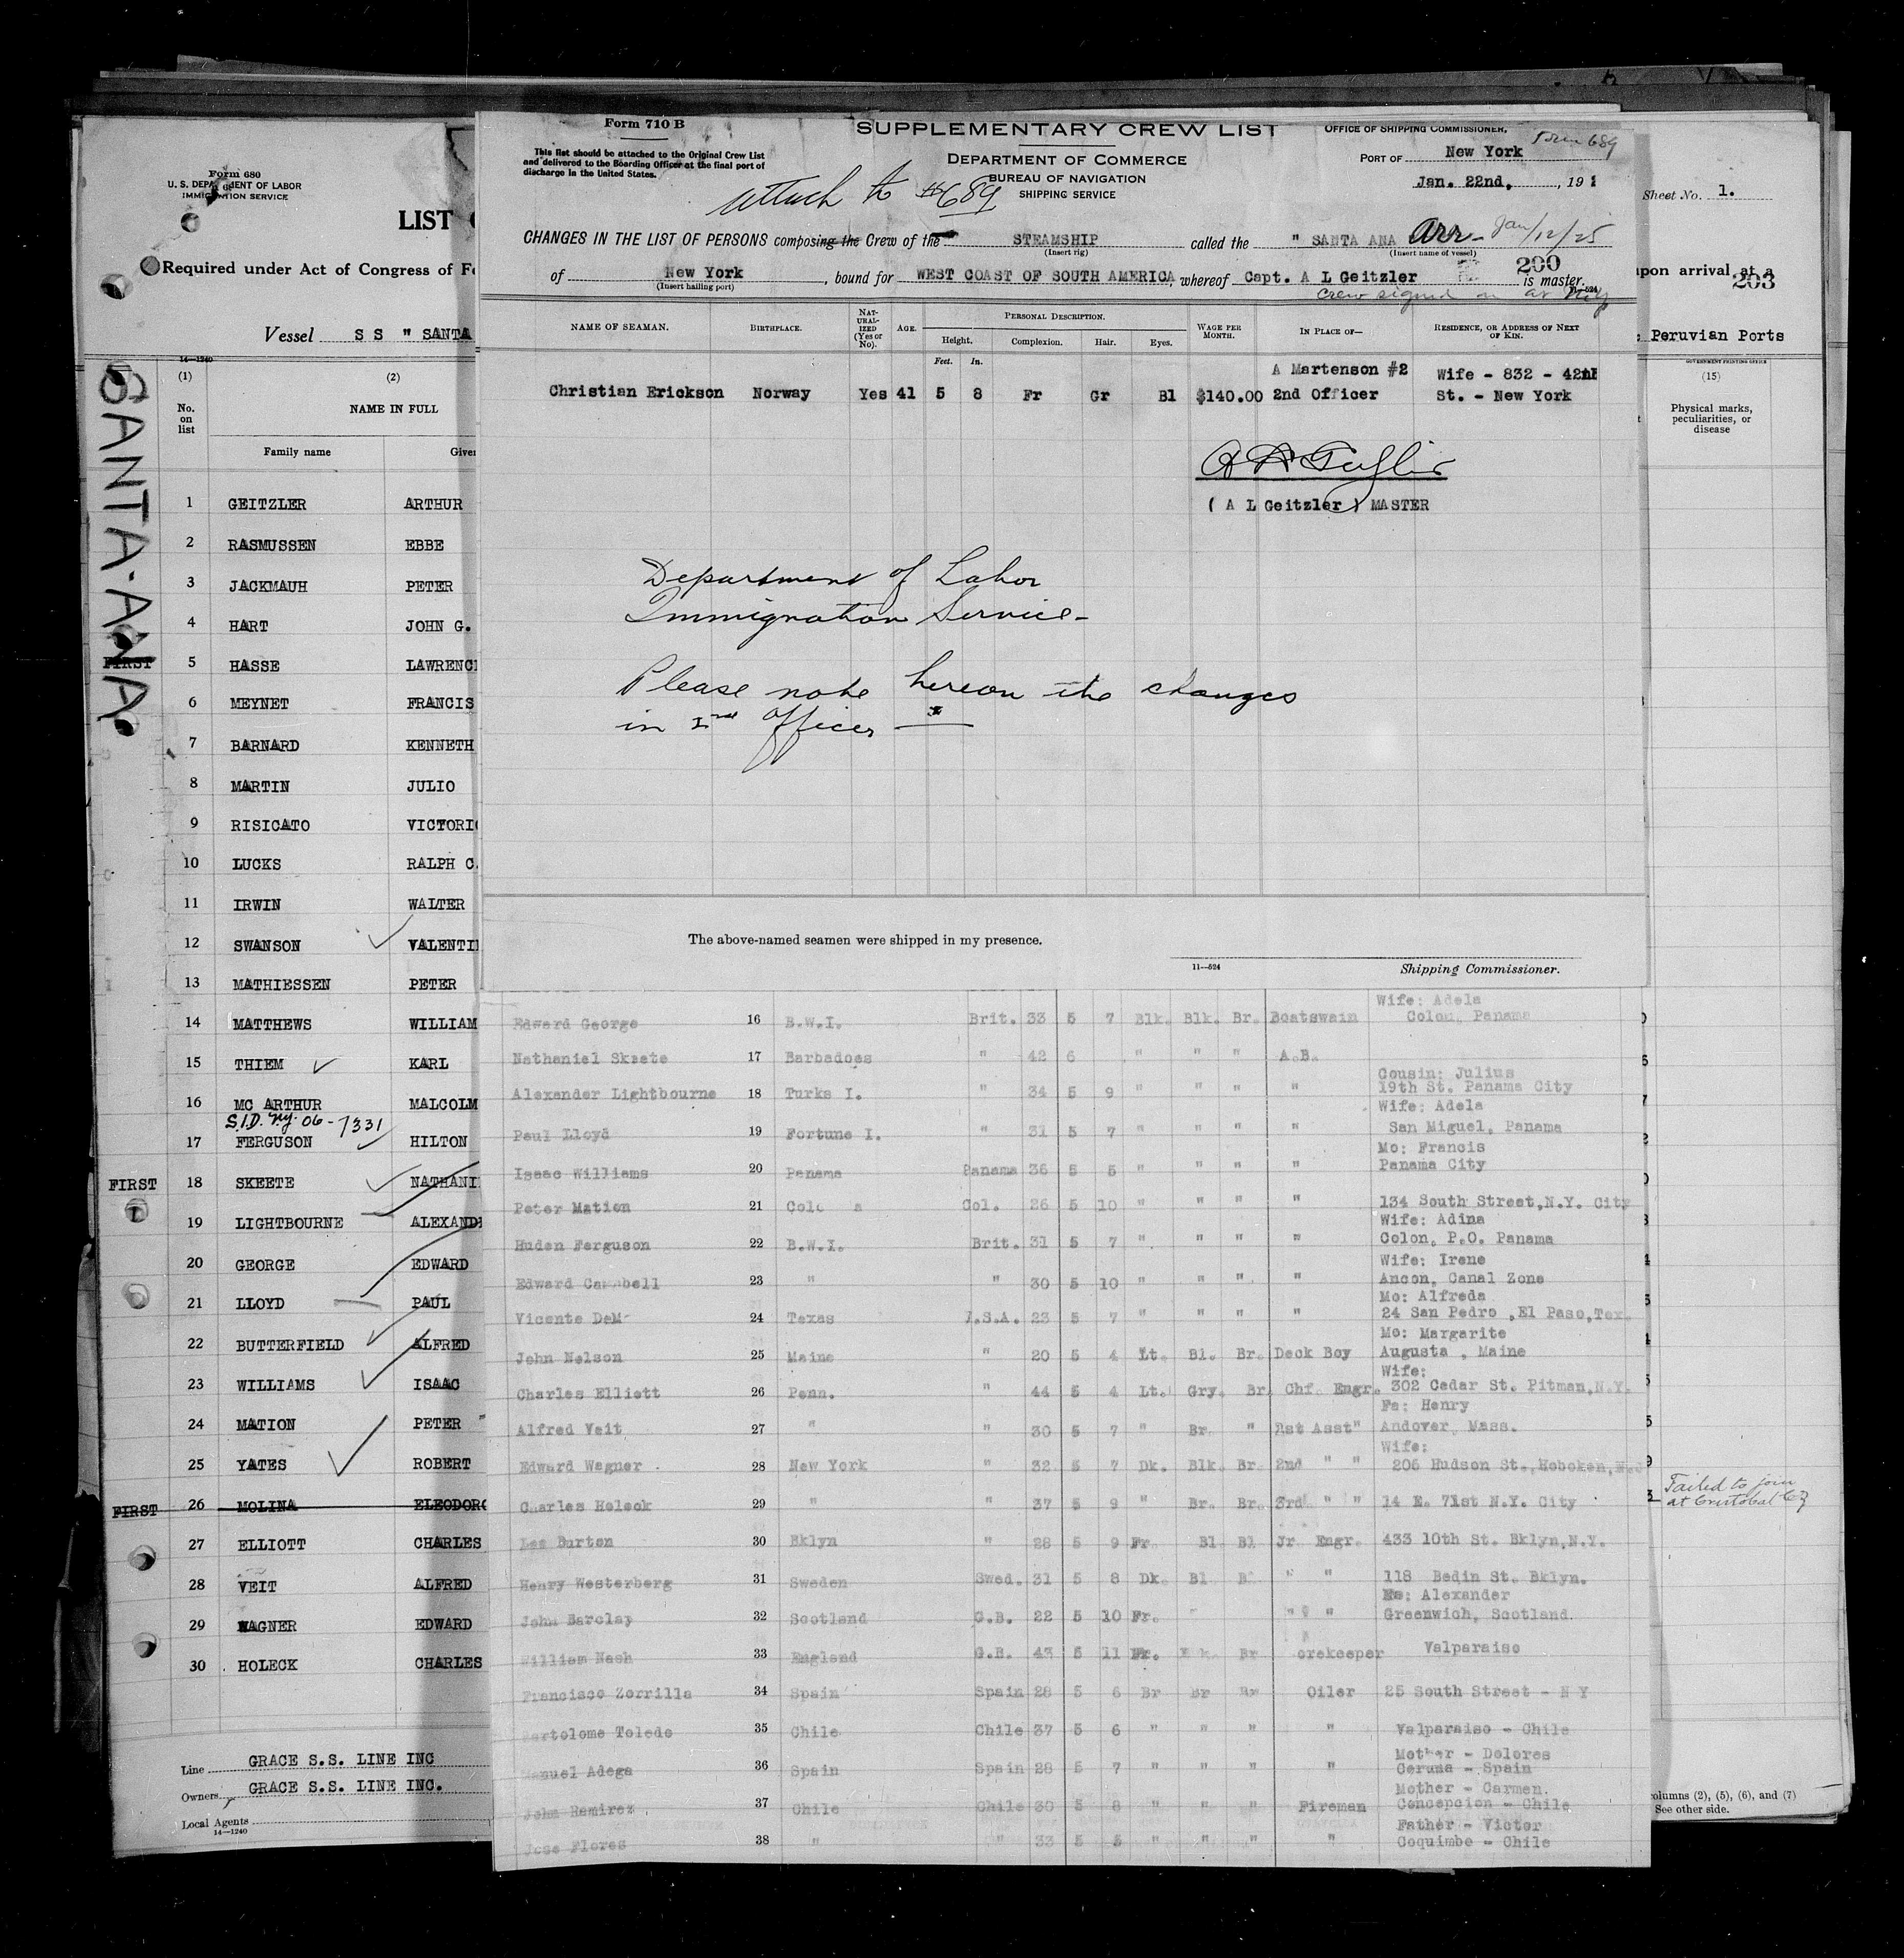 Form 680
U. S. DEPARTMENT OF LABOR
IMMIGRATION SERVICE
LIST
Required under Act of Congress of Fe
Vessel S S " SANTA
SANTA-ANA
14—1240
(1) (2)
No. on list
NAME IN FULL
Family name Given
1 GEITZLER ARTHUR
2 RASMUSSEN EBBE
3 JACKMAUH PETER
4 HART JOHN G.
FIRST 5 HASSE LAWRENC
6 MEYNET FRANCIS
7 BARNARD KENNETH
8 MARTIN JULIO
9 RISICATO VICTORI
10 LUCKS RALPH C.
11 IRWIN WALTER
12 SWANSON VALENTI
13 MATHIESSEN PETER
14 MATTHEWS WILLIAM
15 THIEM KARL
16 MC ARTHUR MALCOLM
S.I.D. N.Y. 06-7331
17 FERGUSON HILTON
FIRST 18 SKEETE NATHANI
19 LIGHTBOURNE ALEXAND
20 GEORGE EDWARD
21 LLOYD PAUL
22 BUTTERFIELD ALFRED
23 WILLIAMS ISAAC
24 MATION PETER
25 YATES ROBERT
FIRST 26 MOLINA ELEODORO
27 ELLIOTT CHARLES
28 VEIT ALFRED
29 WAGNER EDWARD
30 HOLECK CHARLES
Line GRACE S.S. LINE INC
Owners GRACE S.S. LINE INC.
Local Agents
14—1240
Form 710 B
This list should be attached to the Original Crew List
and delivered to the Boarding Officer at the final port of
discharge in the United States.
SUPPLEMENTARY CREW LIST
DEPARTMENT OF COMMERCE
BUREAU OF NAVIGATION
SHIPPING SERVICE
attach to #689
OFFICE OF SHIPPING COMMISSIONER,
Form 689
PORT OF New York
Jan. 22nd, , 19
CHANGES IN THE LIST OF PERSONS composing the Crew of the STEAMSHIP called the " SANTA ANA Arr- Jan/12/25
(Insert rig) (Insert name of vessel)
200
of New York , bound for WEST COAST OF SOUTH AMERICA, whereof Capt. A L Geitzler is master.
(Insert hailing port)
11—524
crew signed on at
NAME OF SEAMAN. BIRTHPLACE. NATURALIZED (Yes or No). AGE. PERSONAL DESCRIPTION. WAGE PER MONTH. IN PLACE OF— RESIDENCE, OR ADDRESS OF NEXT OF KIN.
Height. Complexion. Hair. Eyes.
Feet. In.
A Martenson #2 Wife - 832 - 42
Christian Erickson Norway Yes 41 5 8 Fr Gr Bl $140.00 2nd Officer St. - New York
( A L Geitzler ) MASTER
Department of Labor
Immigration Service-
Please note hereon the changes
in 2nd Officer
The above-named seamen were shipped in my presence.
11—524
Shipping Commissioner.
Wife: Adela
Edward George 16 B.W.I. Brit. 33 5 7 Blk. Blk. Br. Boatswain Colon, Panama
Nathaniel Skeete 17 Barbadoes " 42 6 " " " A.B.
Cousin: Julius
Alexander Lightbourne 18 Turks I. " 34 5 9 " " " " 19th St. Panama City
Wife: Adela
Paul Lloyd 19 Fortune I. " 31 5 7 " " " " San Miguel, Panama
Mo: Francis
Isaac Williams 20 Panama Panama 36 5 5 " " " " Panama City
Peter Mation 21 Colo a Col. 26 5 10 " " " " 134 South Street, N.Y. City
Wife: Adina
Huden Ferguson 22 B.W.I. Brit. 31 5 7 " " " " Colon, P.O. Panama
Wife: Irene
Edward Campbell 23 " " 30 5 10 " " " " Ancon, Canal Zone
Mo: Alfreda
Vicente DeM 24 Texas U.S.A. 23 5 7 " " " " 24 San Pedro ,El Paso,Tex.
Mo: Margarite
John Nelson 25 Maine " 20 5 4 Lt. Bl. Br. Deck Boy Augusta , Maine
Wife:
Charles Elliett 26 Penn. " 44 5 4 Lt. Gry. Br. Chf. Engr. 302 Cedar St. Pitman,N.Y.
Fa: Henry
Alfred Veit 27 " " 30 5 7 " Br. " 1st Asst" Andover, Mass.
Wife:
Edward Wagner 28 New York " 32 5 7 Dk. Blk. Br. 2nd " " 206 Hudson St., Hoboken,
Charles Holeck 29 " " 37 5 9 " Br. Br. 3rd " " 14 E. 71st N.Y. City
Lee Burton 30 Bklyn " 28 5 9 Fr. Bl Bl Jr Engr. 433 10th St. Bklyn,N.Y.
Henry Westerberg 31 Sweden Swed. 31 5 8 Dk. Bl " " 118 Bedin St. Bklyn.
Alexander
John Barclay 32 Scotland G.B. 22 5 10 Fr. " " Greenwich, Scotland.
William Nash 33 England G.B. 43 5 11 Fr. Br orekeeper Valparaiso
Francisco Zorrilla 34 Spain Spain 28 5 6 Br Br Br Oiler 25 South Street - N Y
Bartolome Toledo 35 Chile Chile 37 5 6 " " " " Valparaiso - Chile
Mother - Dolores
Manuel Adega 36 Spain Spain 28 5 7 " " " " Coruna - Spain
Mother - Carmen.
John Ramirez 37 Chile Chile 30 5 8 " " " Fireman Concepcion - Chile
Father - Victor
Jose Flores 38 " " 33 5 5 " " " " Coquimbo - Chile
Sheet No. 1.
upon arrival at a
203
Peruvian Ports
GOVERNMENT PRINTING OFFICE
(15)
Physical marks, peculiarities, or disease
Failed to join
at Cristobal CZ
olumns (2), (5), (6), and (7)
See other side.